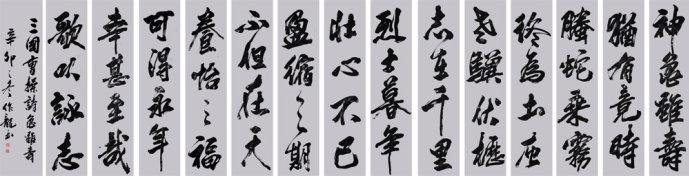 神龟雖壽
猶有竟時
騰蛇乘霧
終為土灰
老驥伏櫪
志在千里
烈士暮年
壮心不已
盈縮之期
不但在天
養怡之福
可得永年
幸甚至哉
歌以詠志
三國曹操詩龟雖壽
辛卯之冬作龍书